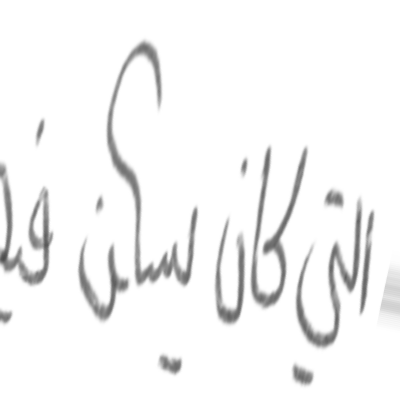 التي كان يسكن فيها